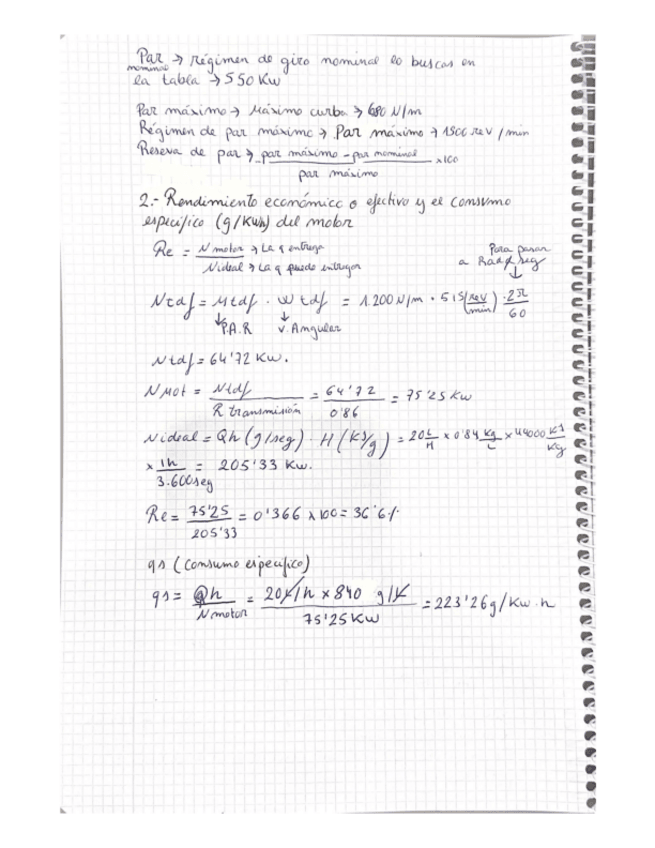 Par → régimen de giro nominal lo buscas en
nominal
la tabla → 550 Kw
Par máximo → Máximo curba → 680 N/m
Régimen de par máximo → Par máximo → 1500 rev / min
Reseva de par → par máximo - par nominal x100
par máximo
2.- Rendimiento económico o efectivo y el consumo
específico (g/Kwh) del motor
Re = N motor → La q entrega
N ideal → La q puede entregar
Para pasar
a Rad/seg
↓
Ntdf = Mtdf · W tdf = 1.200 N/m · 515 (rev/min) · 2π/60
↓ P.A.R ↓ v. Angular
Ntdf = 64'72 Kw.
N Mot = Ntdf / R transmisión = 64'72 / 0'86 = 75'25 Kw
N ideal = Qh (g/seg) · H (KJ/g) = 20 L/H x 0'84 Kg/L x 44000 KJ/Kg
x 1h / 3.600seg = 205'33 Kw.
Re = 75'25 / 205'33 = 0'366 x 100 = 36'6%
qs (consumo especifico)
qs = Qh / N motor = 20 L/h x 840 g/L / 75'25 Kw = 223'26 g/Kw·h